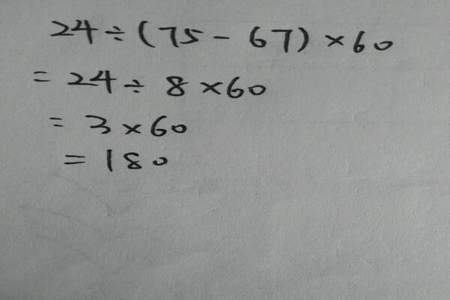 24÷(75-67)×60
=24÷8×60
=3×60
=180